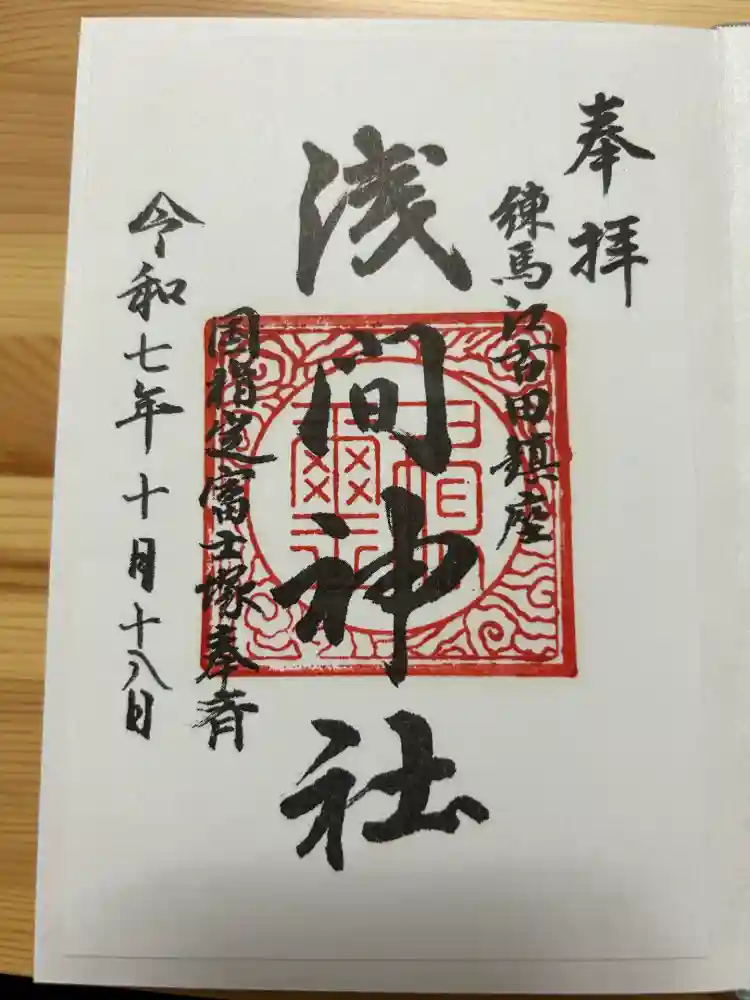 奉拝
練馬江古田鎮座
浅間神社
国指定富士塚奉斎
令和七年十月十八日